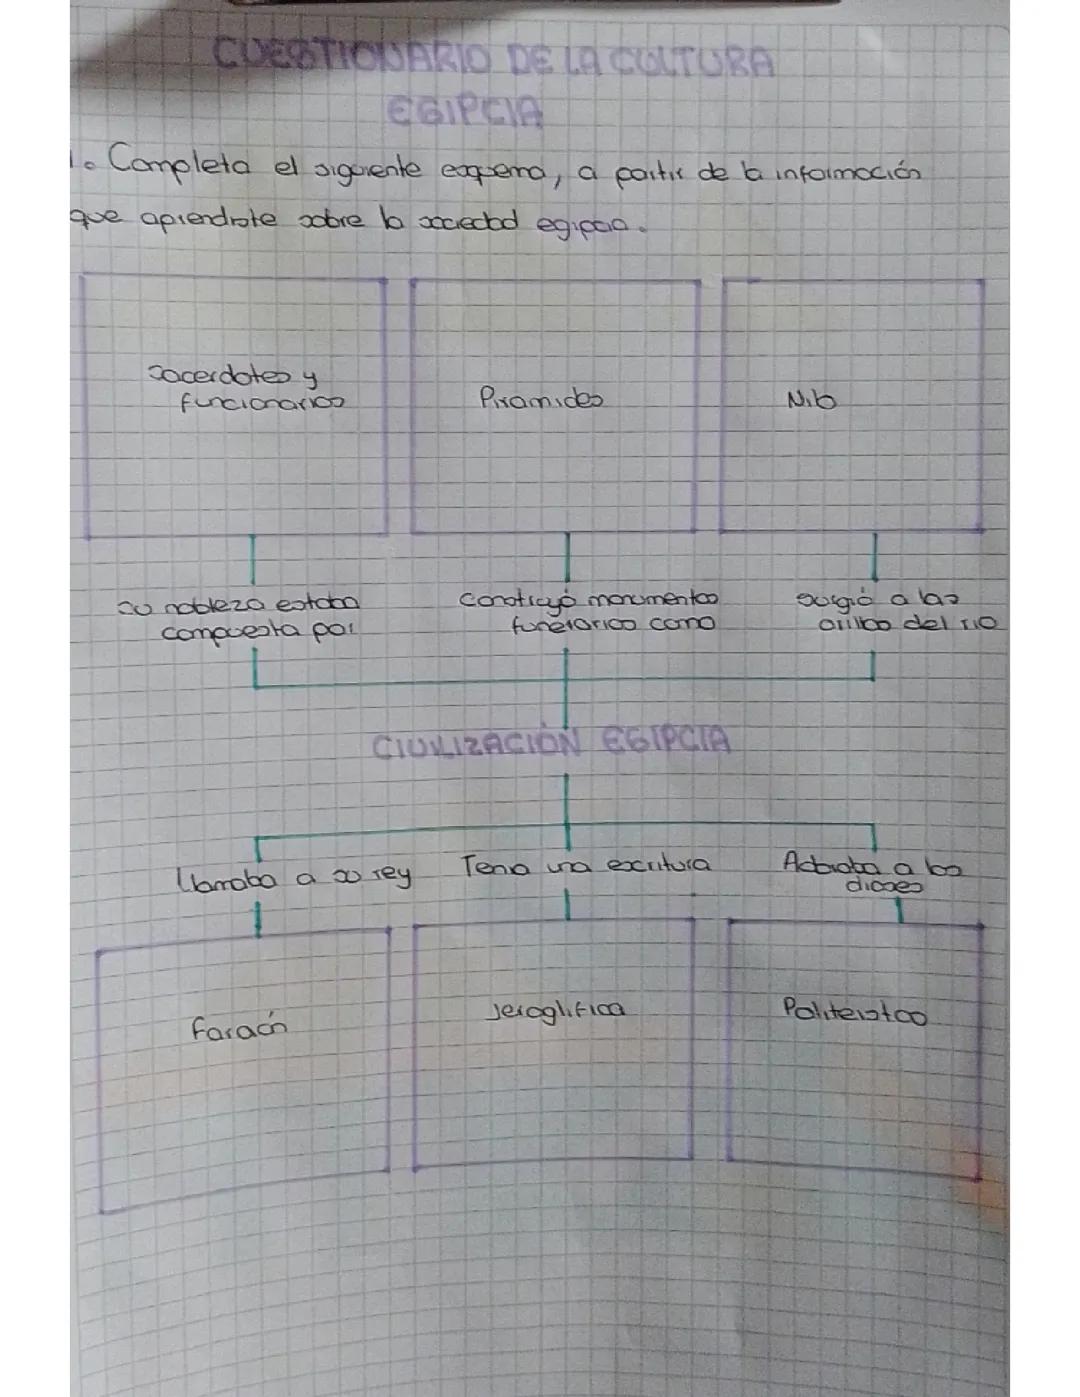 CUESTIONARIO DE LA CULTURA
EGIPCIA
1. Completa el siguiente esquema, a partir de la información
que aprendiste sobre la sociedad egipcia.
Sacerdotes y
funcionarios
Piramides
Nilo
su nobleza estaba
compuesta por
construyó monumentos
funerarios como
surgió a las
orillas del rio
CIVILIZACIÓN EGIPCIA
Llamaba a su rey
Tenia una escritura
Adoraba a los
dioses
Faraón
Jeroglifica
Politeistas